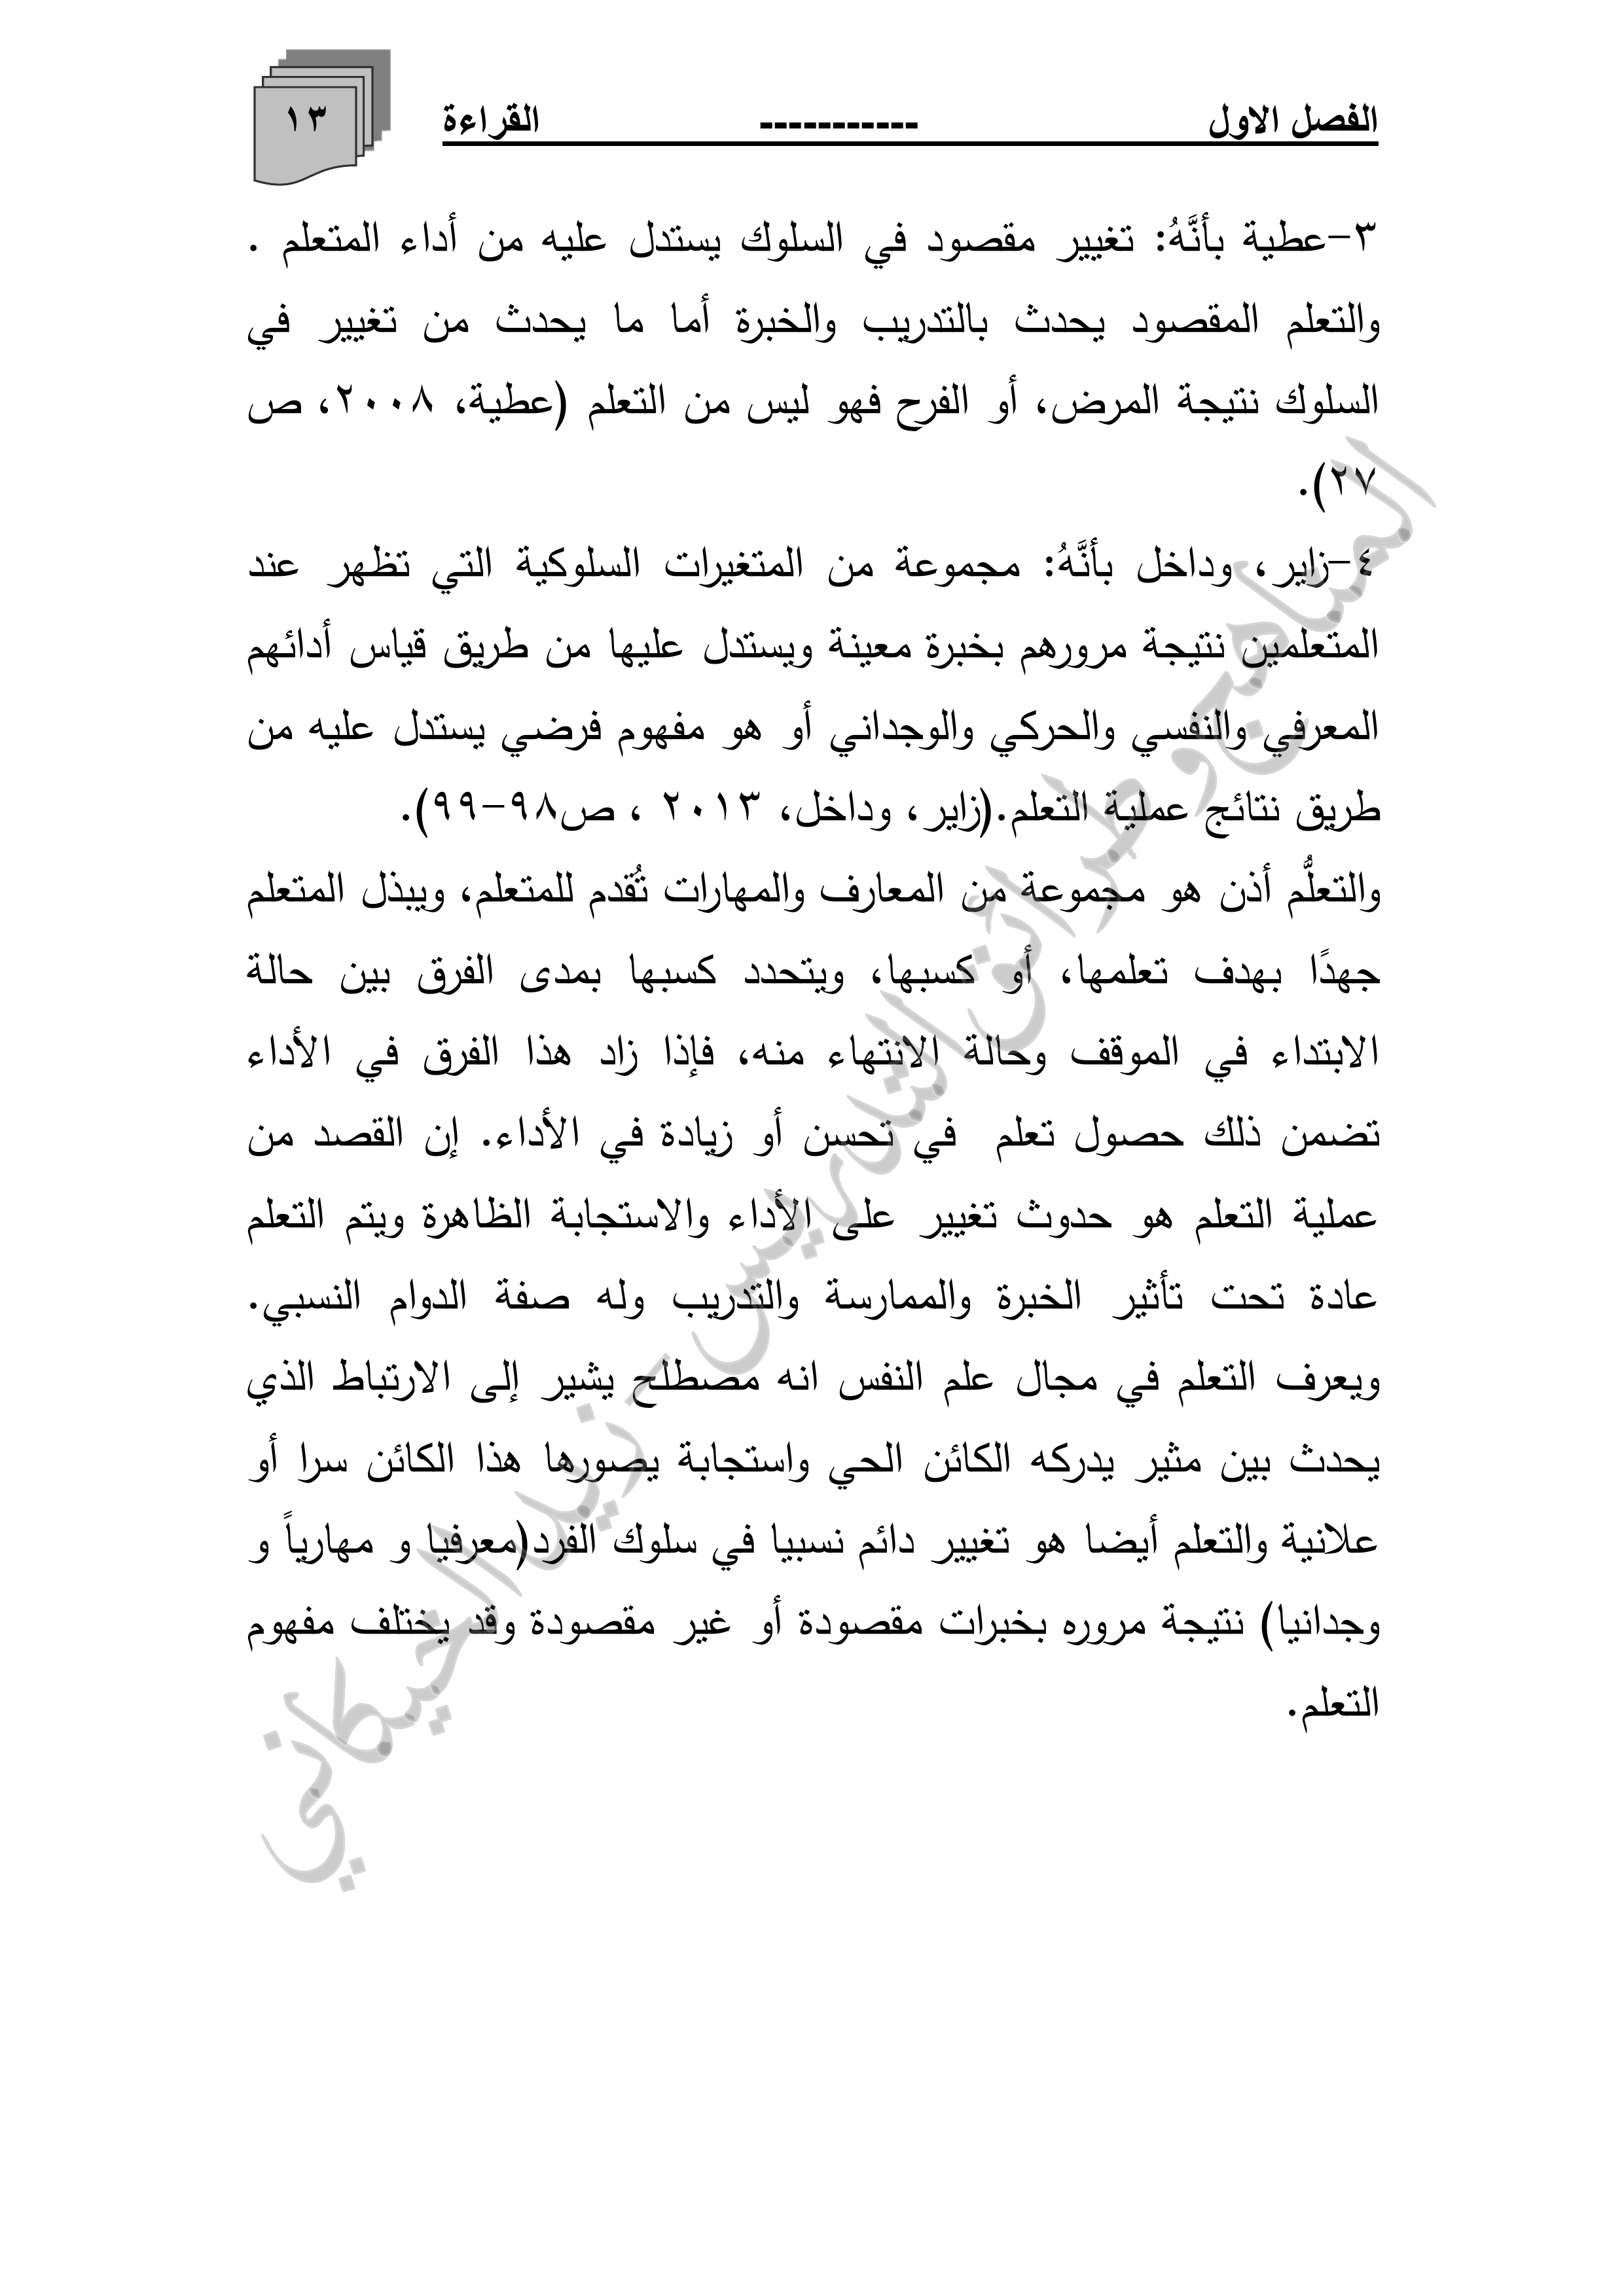 الفصل الاول ----------- القراءة ١٣
٣-عطية بأنَّهُ: تغيير مقصود في السلوك يستدل عليه من أداء المتعلم .
والتعلم المقصود يحدث بالتدريب والخبرة أما ما يحدث من تغيير في
السلوك نتيجة المرض، أو الفرح فهو ليس من التعلم (عطية، ٢٠٠٨، ص
٢٧).
٤-زاير، وداخل بأنَّهُ: مجموعة من المتغيرات السلوكية التي تظهر عند
المتعلمين نتيجة مرورهم بخبرة معينة ويستدل عليها من طريق قياس أدائهم
المعرفي والنفسي والحركي والوجداني أو هو مفهوم فرضي يستدل عليه من
طريق نتائج عملية التعلم.(زاير، وداخل، ٢٠١٣ ، ص٩٨-٩٩).
والتعلُّم أذن هو مجموعة من المعارف والمهارات تُقدم للمتعلم، ويبذل المتعلم
جهدًا بهدف تعلمها، أو كسبها، ويتحدد كسبها بمدى الفرق بين حالة
الابتداء في الموقف وحالة الانتهاء منه، فإذا زاد هذا الفرق في الأداء
تضمن ذلك حصول تعلم في تحسن أو زيادة في الأداء. إن القصد من
عملية التعلم هو حدوث تغيير على الأداء والاستجابة الظاهرة ويتم التعلم
عادة تحت تأثير الخبرة والممارسة والتدريب وله صفة الدوام النسبي.
ويعرف التعلم في مجال علم النفس انه مصطلح يشير إلى الارتباط الذي
يحدث بين مثير يدركه الكائن الحي واستجابة يصورها هذا الكائن سرا أو
علانية والتعلم أيضا هو تغيير دائم نسبيا في سلوك الفرد(معرفيا و مهارياً و
وجدانيا) نتيجة مروره بخبرات مقصودة أو غير مقصودة وقد يختلف مفهوم
التعلم.
المناهج و طرائق التدريس - زيد الخيكاني